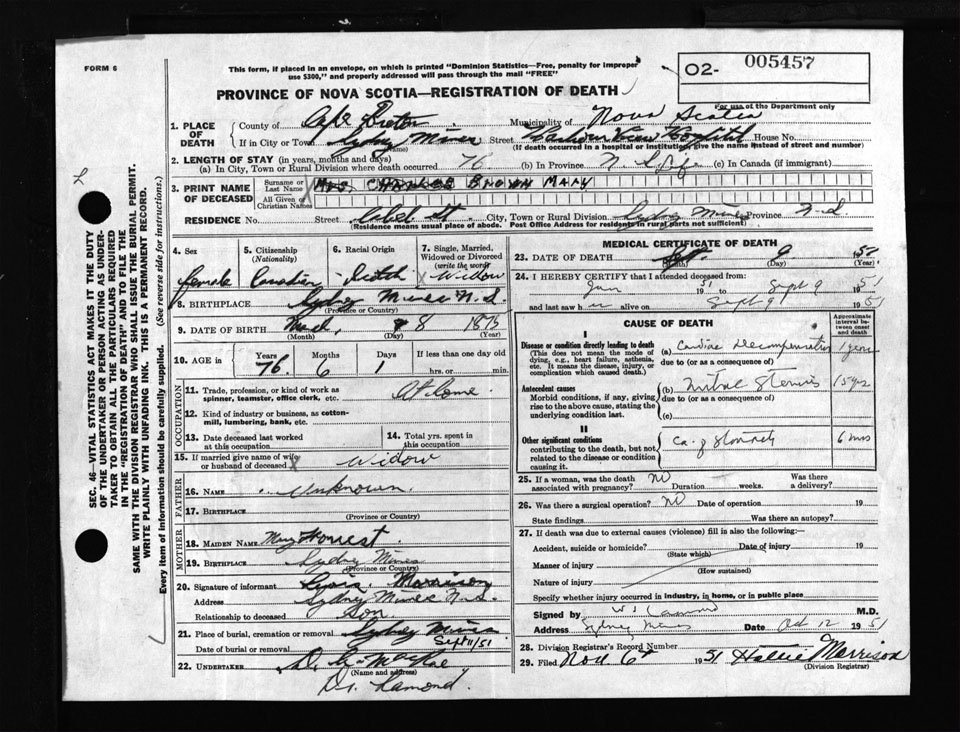 FORM 6
This form, if placed in an envelope, on which is printed "Dominion Statistics—Free, penalty for improper
use $300," and properly addressed will pass through the mail "FREE"
O2- 005457
For use of the Department only
PROVINCE OF NOVA SCOTIA—REGISTRATION OF DEATH
1. PLACE OF DEATH
County of Cape Breton Municipality of Nova Scotia
If in City or Town Sydney Mines Street Harbour View Hospital House No.
(Name) (If death occurred in a hospital or institution, give the name instead of street and number)
2. LENGTH OF STAY (in years, months and days)
(a) In City, Town or Rural Division where death occurred 76 (b) In Province Life (c) In Canada (if immigrant)
3. PRINT NAME OF DECEASED
Surname or Last Name Mrs. Charles Brown Mary
All Given or Christian Names
RESIDENCE No. Street City, Town or Rural Division Sydney Mines Province N.S
(Residence means usual place of abode. Post Office Address for residents in rural parts not sufficient)
4. Sex female
5. Citizenship (Nationality) Canadian
6. Racial Origin Scotch
7. Single, Married, Widowed or Divorced (write the word) Widow
8. BIRTHPLACE Sydney Mines N.S.
(Province or Country)
9. DATE OF BIRTH Mch. 8 1875
(Month) (Day) (Year)
10. AGE in Years Months Days If less than one day old
76 6 1 hrs. or min.
OCCUPATION
11. Trade, profession, or kind of work as
spinner, teamster, office clerk, etc. At Home
12. Kind of industry or business, as cotton-
mill, lumbering, bank, etc.
13. Date deceased last worked
at this occupation
14. Total yrs. spent in
this occupation
15. If married give name of wife
or husband of deceased Widow
FATHER
16. NAME Unknown
17. BIRTHPLACE
(Province or Country)
MOTHER
18. MAIDEN NAME Mary
19. BIRTHPLACE Sydney Mines
(Province or Country)
20. Signature of informant Morrison
Address Sydney Mines N.S.
Relationship to deceased son
21. Place of burial, cremation or removal Sydney Mines
Date of burial or removal Sept 11/51
22. UNDERTAKER
(Name and address)
Dr. Lamond.
MEDICAL CERTIFICATE OF DEATH
23. DATE OF DEATH Sept. 9 1951
(Month) (Day) (Year)
24. I HEREBY CERTIFY that I attended deceased from
Jan 1951 to Sept 9 1951
and last saw her alive on Sept 9 1951
CAUSE OF DEATH
Approximate interval between onset and death
I
Disease or condition directly leading to death
(This does not mean the mode of
dying, e.g., heart failure, asthenia,
etc. It means the disease, injury, or
complication which caused death.)
(a) Cardiac Decompensation 1 year
due to (or as a consequence of)
Antecedent causes
Morbid conditions, if any, giving
rise to the above cause, stating the
underlying condition last.
(b) Mitral Stenosis 15 yrs
due to (or as a consequence of)
(c)
II
Other significant conditions
contributing to the death, but not
related to the disease or condition
causing it.
Ca. of Stomach 6 mos
25. If a woman, was the death
associated with pregnancy? NO Duration weeks. Was there
a delivery?
26. Was there a surgical operation? NO Date of operation 19
State findings Was there an autopsy?
27. If death was due to external causes (violence) fill in also the following:
Accident, suicide or homicide? Date of injury 19
(State which)
Manner of injury
(How sustained)
Nature of injury
Specify whether injury occurred in industry, in home, or in public place
Signed by M.D.
Address Sydney Mines Date Oct 12 1951
28. Division Registrar's Record Number
29. Filed Nov 6th 1951 Hattie Morrison
(Division Registrar)
SEC. 46—VITAL STATISTICS ACT MAKES IT THE DUTY
OF THE UNDERTAKER OR PERSON ACTING AS UNDER-
TAKER TO OBTAIN ALL THE PARTICULARS REQUIRED
IN THE "REGISTRATION OF DEATH" AND TO FILE THE
SAME WITH THE DIVISION REGISTRAR WHO SHALL ISSUE THE BURIAL PERMIT.
WRITE PLAINLY WITH UNFADING INK. THIS IS A PERMANENT RECORD.
Every item of information should be carefully supplied. (See reverse side for instructions.)